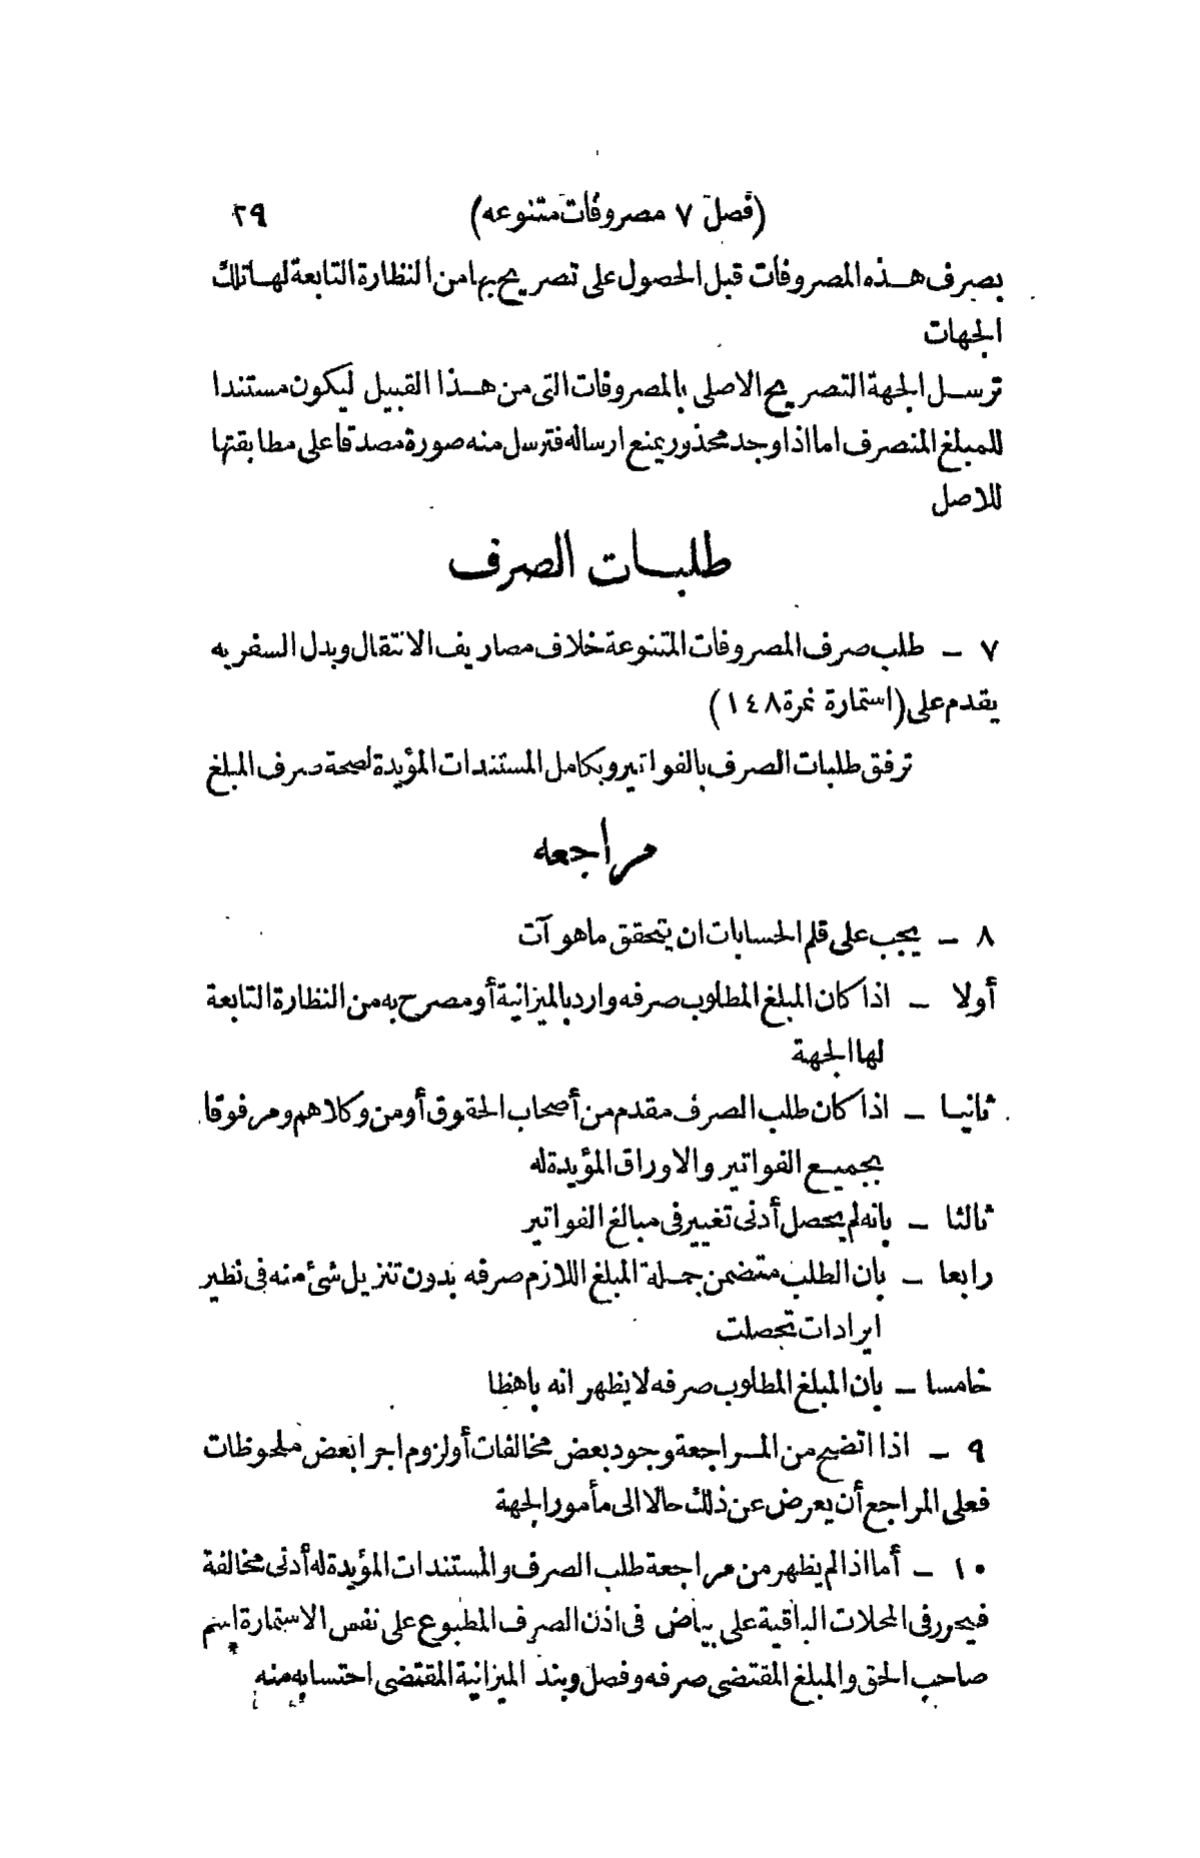 (فصل ٧ مصروفات متنوعه) ٢٩
بصرف هذه المصروفات قبل الحصول على تصريح بها من النظارة التابعة لها تلك
الجهات
ترسل الجهة التصريح الاصلى بالمصروفات التى من هذا القبيل ليكون مستندا
للمبلغ المنصرف اما اذا وجد محذور يمنع ارساله فترسل منه صورة مصدقا على مطابقتها
للاصل
طلبات الصرف
٧ – طلب صرف المصروفات المتنوعة خلاف مصاريف الانتقال وبدل السفريه
يقدم على (استمارة نمرة ١٤٨)
ترفق طلبات الصرف بالفواتير وبكامل المستندات المؤيدة لصحة صرف المبلغ
مراجعه
٨ – يجب على قلم الحسابات ان يتحقق ما هو آت
أولا – اذا كان المبلغ المطلوب صرفه وارد بالميزانية أو مصرح به من النظارة التابعة
لها الجهة
ثانيا – اذا كان طلب الصرف مقدم من أصحاب الحقوق أو من وكلاهم ومرفوقا
بجميع الفواتير والاوراق المؤيدة له
ثالثا – بانه لم يحصل أدنى تغيير فى مبالغ الفواتير
رابعا – بان الطلب متضمن جملة المبلغ اللازم صرفه بدون تنزيل شئ منه فى نظير
ايرادات تحصلت
خامسا – بان المبلغ المطلوب صرفه لا يظهر انه باهظا
٩ – اذا اتضح من المراجعة وجود بعض مخالفات أو لزوم اجرا بعض ملحوظات
فعلى المراجع أن يعرض عن ذلك حالا الى مأمور الجهة
١٠ – أما اذا لم يظهر من مراجعة طلب الصرف والمستندات المؤيدة له أدنى مخالفة
فيحرر فى المحلات الباقية على بياض فى اذن الصرف المطبوع على نفس الاستمارة اسم
صاحب الحق والمبلغ المقتضى صرفه وفصل وبند الميزانية المقتضى احتسابه منه